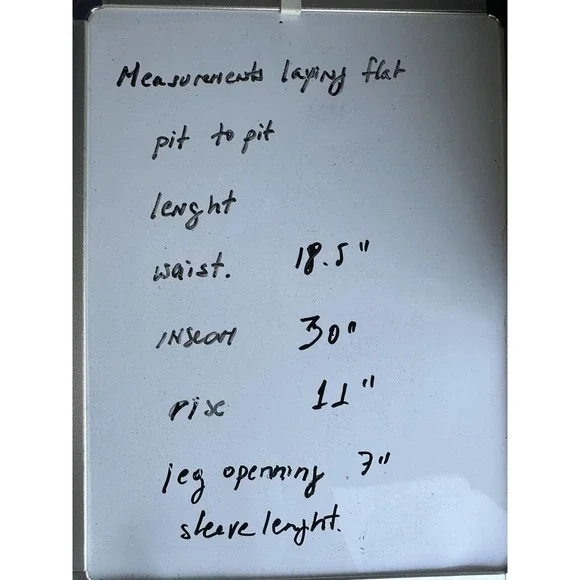 Measurements laying flat
pit to pit
lenght
waist. 18.5"
inseam 30"
rise 11"
leg openning 7"
sleeve lenght.